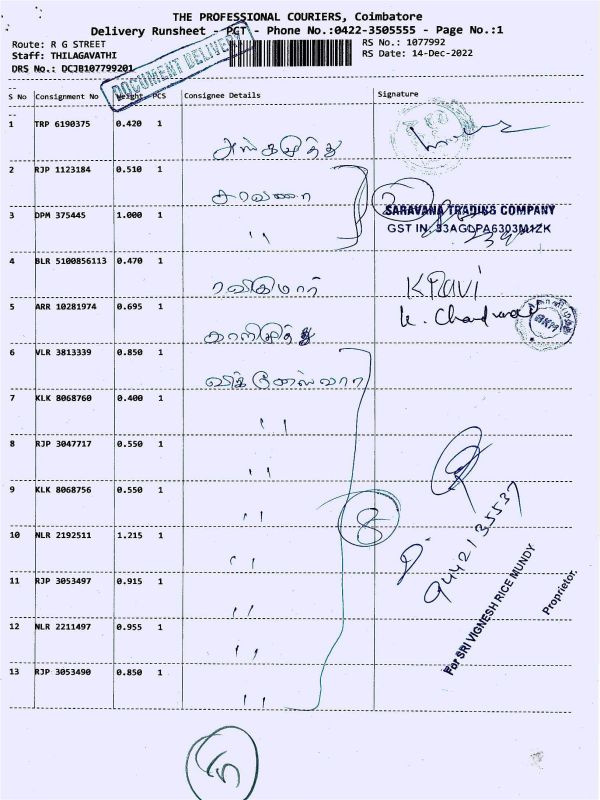 THE PROFESSIONAL COURIERS, Coimbatore
Delivery Runsheet - PGT - Phone No.:0422-3505555 - Page No.:1
Route: R G STREET
RS No.: 1077992
Staff: THILAGAVATHI
RS Date: 14-Dec-2022
DRS No.: DCJB107799201
DOCUMENT DELIVERY
S No Consignment No Weight PCS Consignee Details Signature
1 TRP 6190375 0.420 1
அங்காமுத்து
2 RJP 1123184 0.510 1
சரவணா
3 DPM 375445 1.000 1 ''
SARAVANA TRADING COMPANY
GST IN. 33AGLPA6303M1ZK
4 BLR 5100856113 0.470 1
ரவிகுமார் K Ravi
5 ARR 10281974 0.695 1
காளிமுத்து
6 VLR 3813339 0.850 1
விக்னேஸ்வரா
7 KLK 8068760 0.400 1 ''
8 RJP 3047717 0.550 1 ''
9 KLK 8068756 0.550 1 ''
8
10 NLR 2192511 1.215 1 ''
9442135537
11 RJP 3053497 0.915 1 ''
12 NLR 2211497 0.955 1 ''
For SRI VIGNESH RICE MUNDY
Proprietor.
13 RJP 3053490 0.850 1 ''